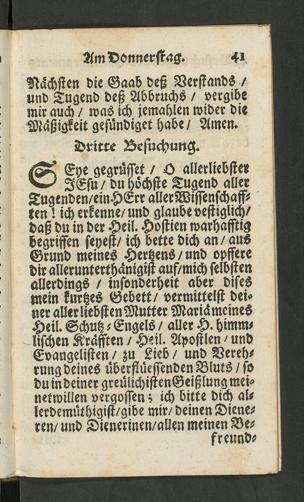 Am Donnerstag. 41
Nächsten die Gaab deß Verstands /
und Tugend deß Abbruchs / vergibe
mir auch / was ich jemahlen wider die
Mäßigkeit gesündiget habe / Amen.
Dritte Besuchung.
SEye gegrüsset / O allerliebster
JEsu / du höchste Tugend aller
Tugenden / ein HErr aller Wissenschaff-
ten ! ich erkenne / und glaube vestiglich /
daß du in der Heil. Hostien warhafftig
begriffen seyest / ich bette dich an / aus
Grund meines Hertzens / und opffere
dir allerunterthänigist auf / mich selbsten
allerdings / insonderheit aber dises
mein kurtzes Gebett / vermittelst dei-
ner allerliebsten Mutter Mariä meines
Heil. Schutz-Engels / aller H. himm-
lischen Kräfften / Heil. Apostlen / und
Evangelisten / zu Lieb / und Vereh-
rung deines überflüssenden Bluts / so
du in deiner greülichisten Geißlung mei-
netwillen vergossen ; ich bitte dich al-
lerdemüthigist / gibe mir / deinen Diene-
ren / und Dienerinen / allen meinen Be-
freund-